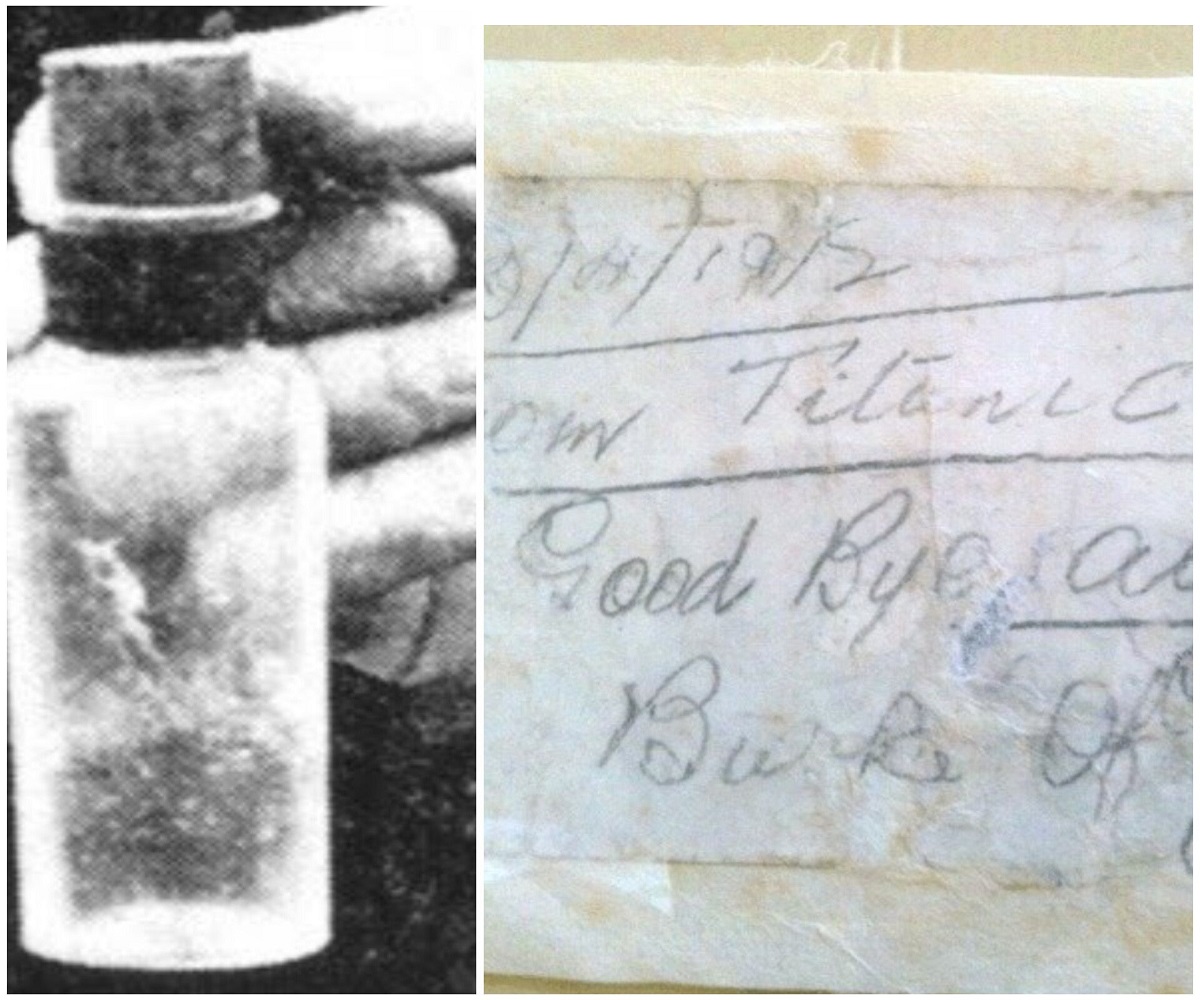 3/04/1912
om Titanic
Good Bye al
Burke Of